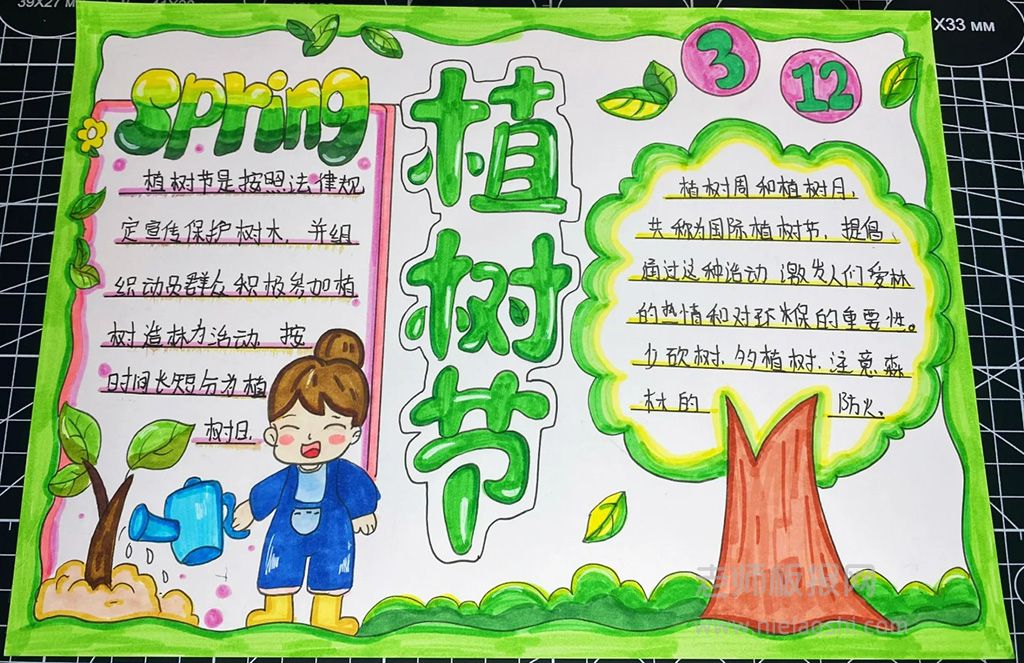 39X27 мм
X33 мм
Spring
植树节是按照法律规
定宣传保护树木，并组
织动员群众积极参加植
树造林为治动，按
时间长短分为植
树日，
植树节
3
12
植树周和植树月，
共称为国际植树节，提倡
通过这种治动，激发人们爱林
的热情和对环保的重要性。
少砍树，多植树，注意森
林的
防火。
老师板报网